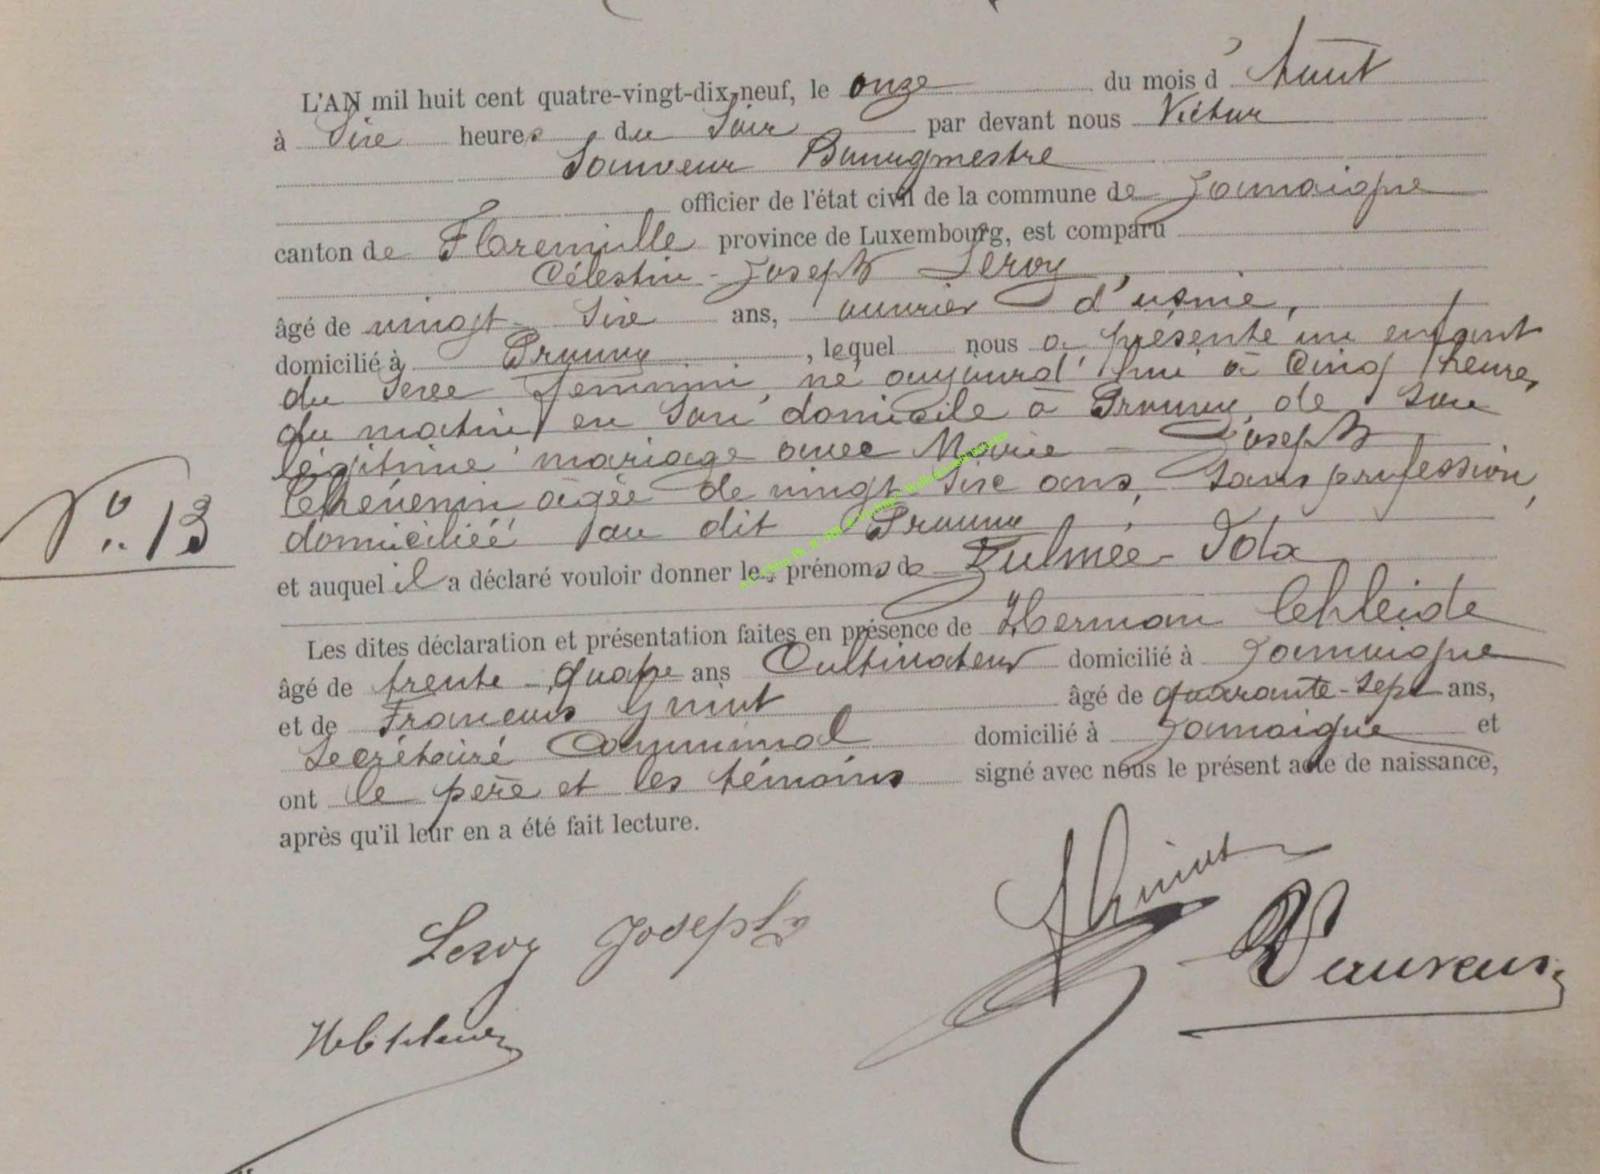 L'AN mil huit cent quatre-vingt-dix-neuf, le onze du mois d'Août
à Six heures du Soir par devant nous Victor
Sauveur Bourgmestre
officier de l'état civil de la commune de Jamoigne
canton de Florenville province de Luxembourg, est comparu
Célestin-Joseph Leroy,
âgé de vingt-Six ans, ouvrier d'usine,
domicilié à Prouvy, lequel nous a présenté un enfant
du Sexe féminin, né aujourd'hui à Cinq heures
du matin en Son domicile à Prouvy, de Son
légitime mariage avec Marie-Joseph
Thévenin âgée de vingt Six ans, Sans profession,
domiciliée au dit Prouvy
N° 13
et auquel il a déclaré vouloir donner les prénoms de Zulmée-Ida
Les dites déclaration et présentation faites en présence de Herman
âgé de trente-quatre ans Cultivateur domicilié à Jamoigne
et de François âgé de quarante-Sept ans,
Secrétaire Communal domicilié à Jamoigne et
ont le père et les témoins signé avec nous le présent acte de naissance,
après qu'il leur en a été fait lecture.
Leroy Joseph
V Sauveur